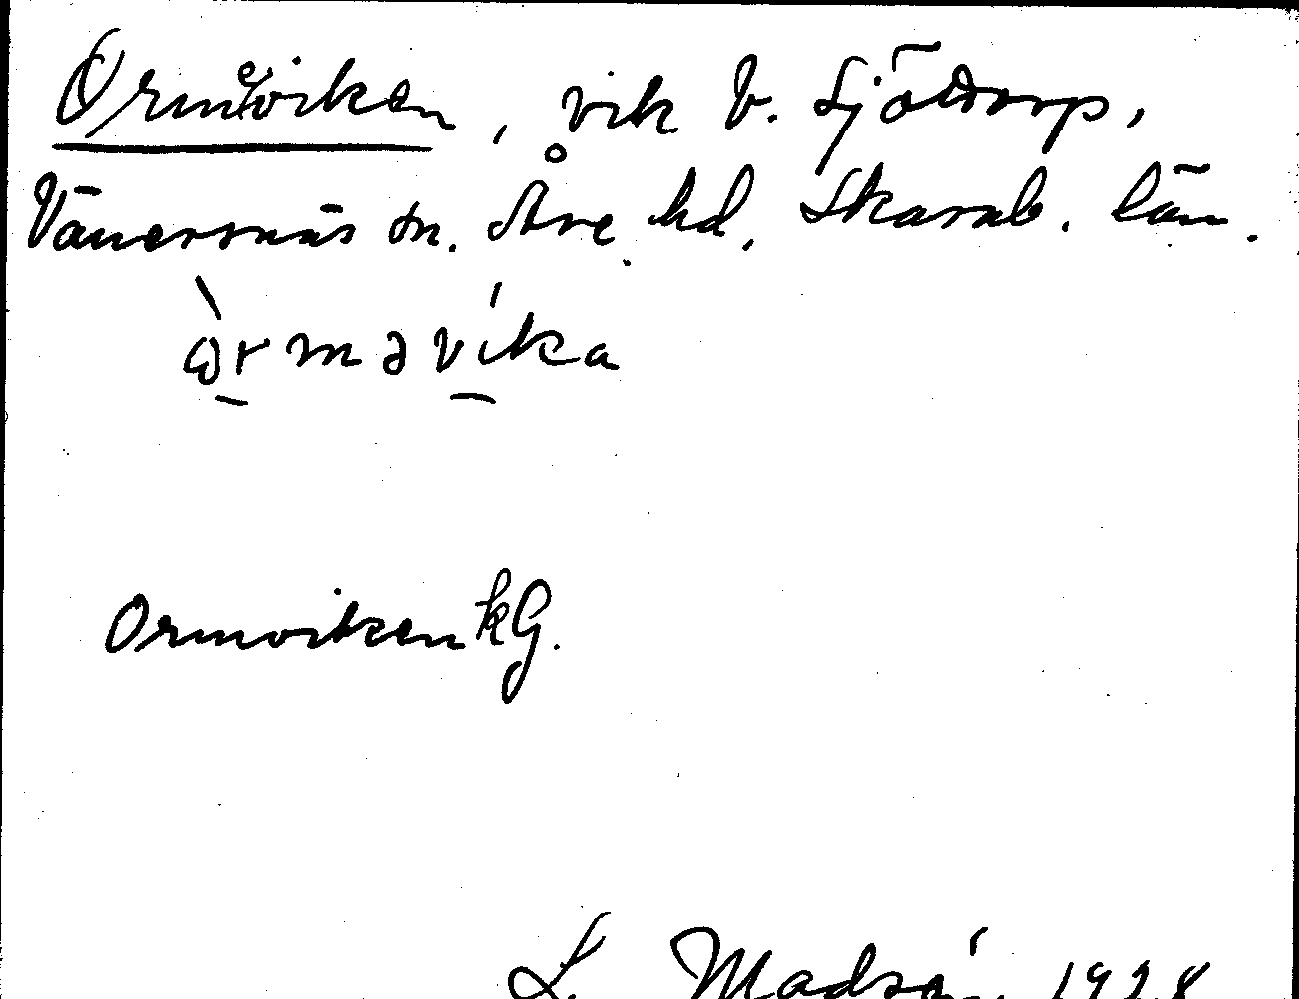 Ormeviken, vik v. Sjötorp,
Vänersnäs sn. Åse hd, Skarab. län.
ormavika
Ormviken kG.
L. Madsén 1928